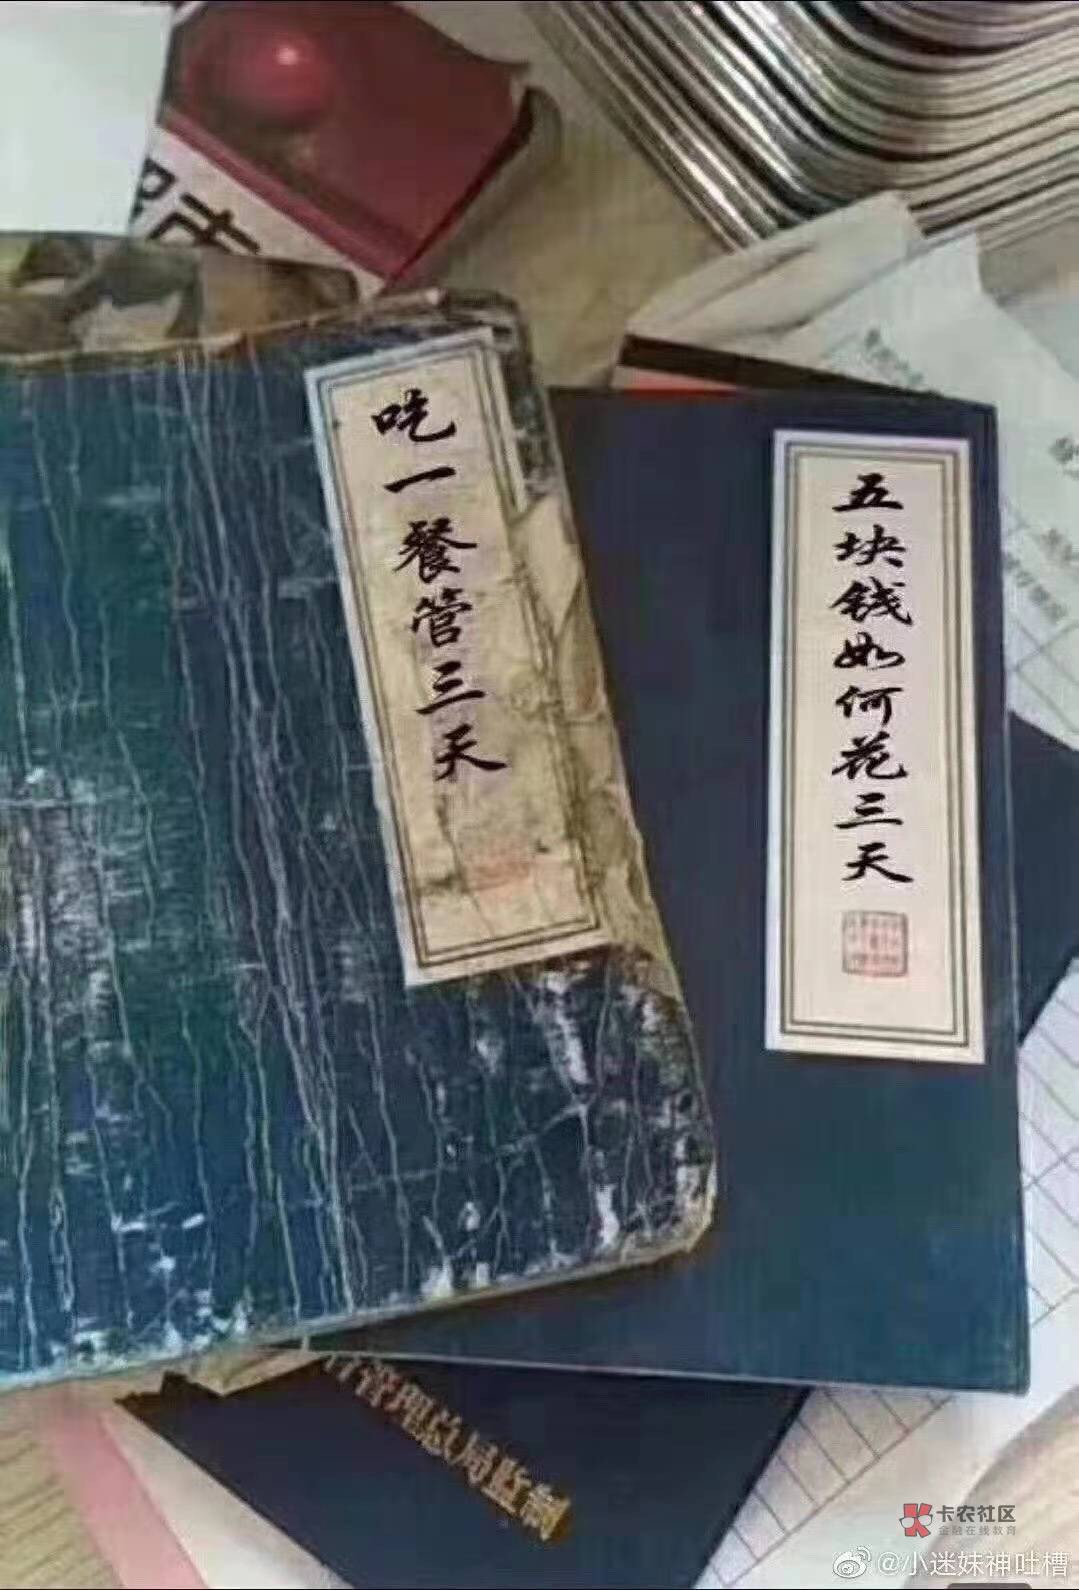 吃一餐管三天
五块钱如何花三天
管理总局监制
卡农社区
金融在线教育
@小迷妹神吐槽